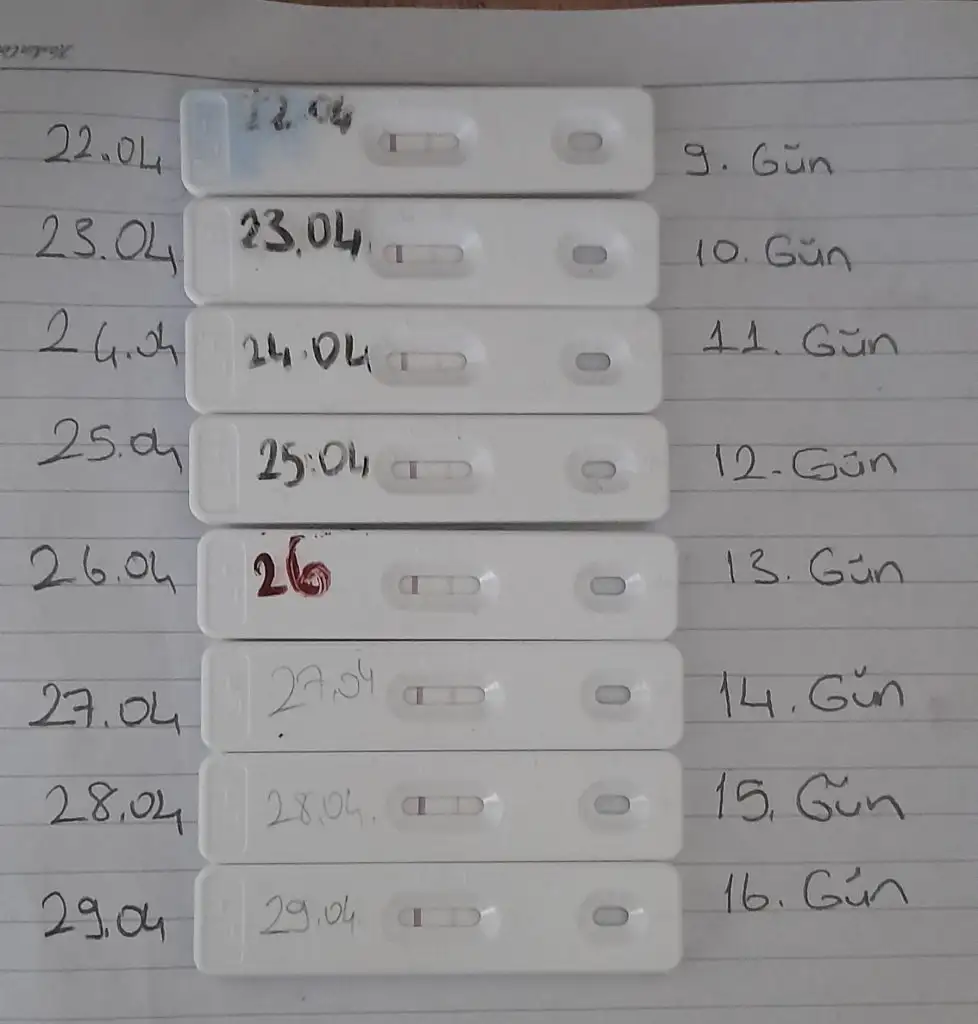 22.04 22.04 9. Gün
23.04 23.04 10. Gün
24.04 24.04 11. Gün
25.04 25.04 12. Gün
26.04 26 13. Gün
27.04 27.04 14. Gün
28.04 28.04. 15. Gün
29.04 29.04 16. Gün